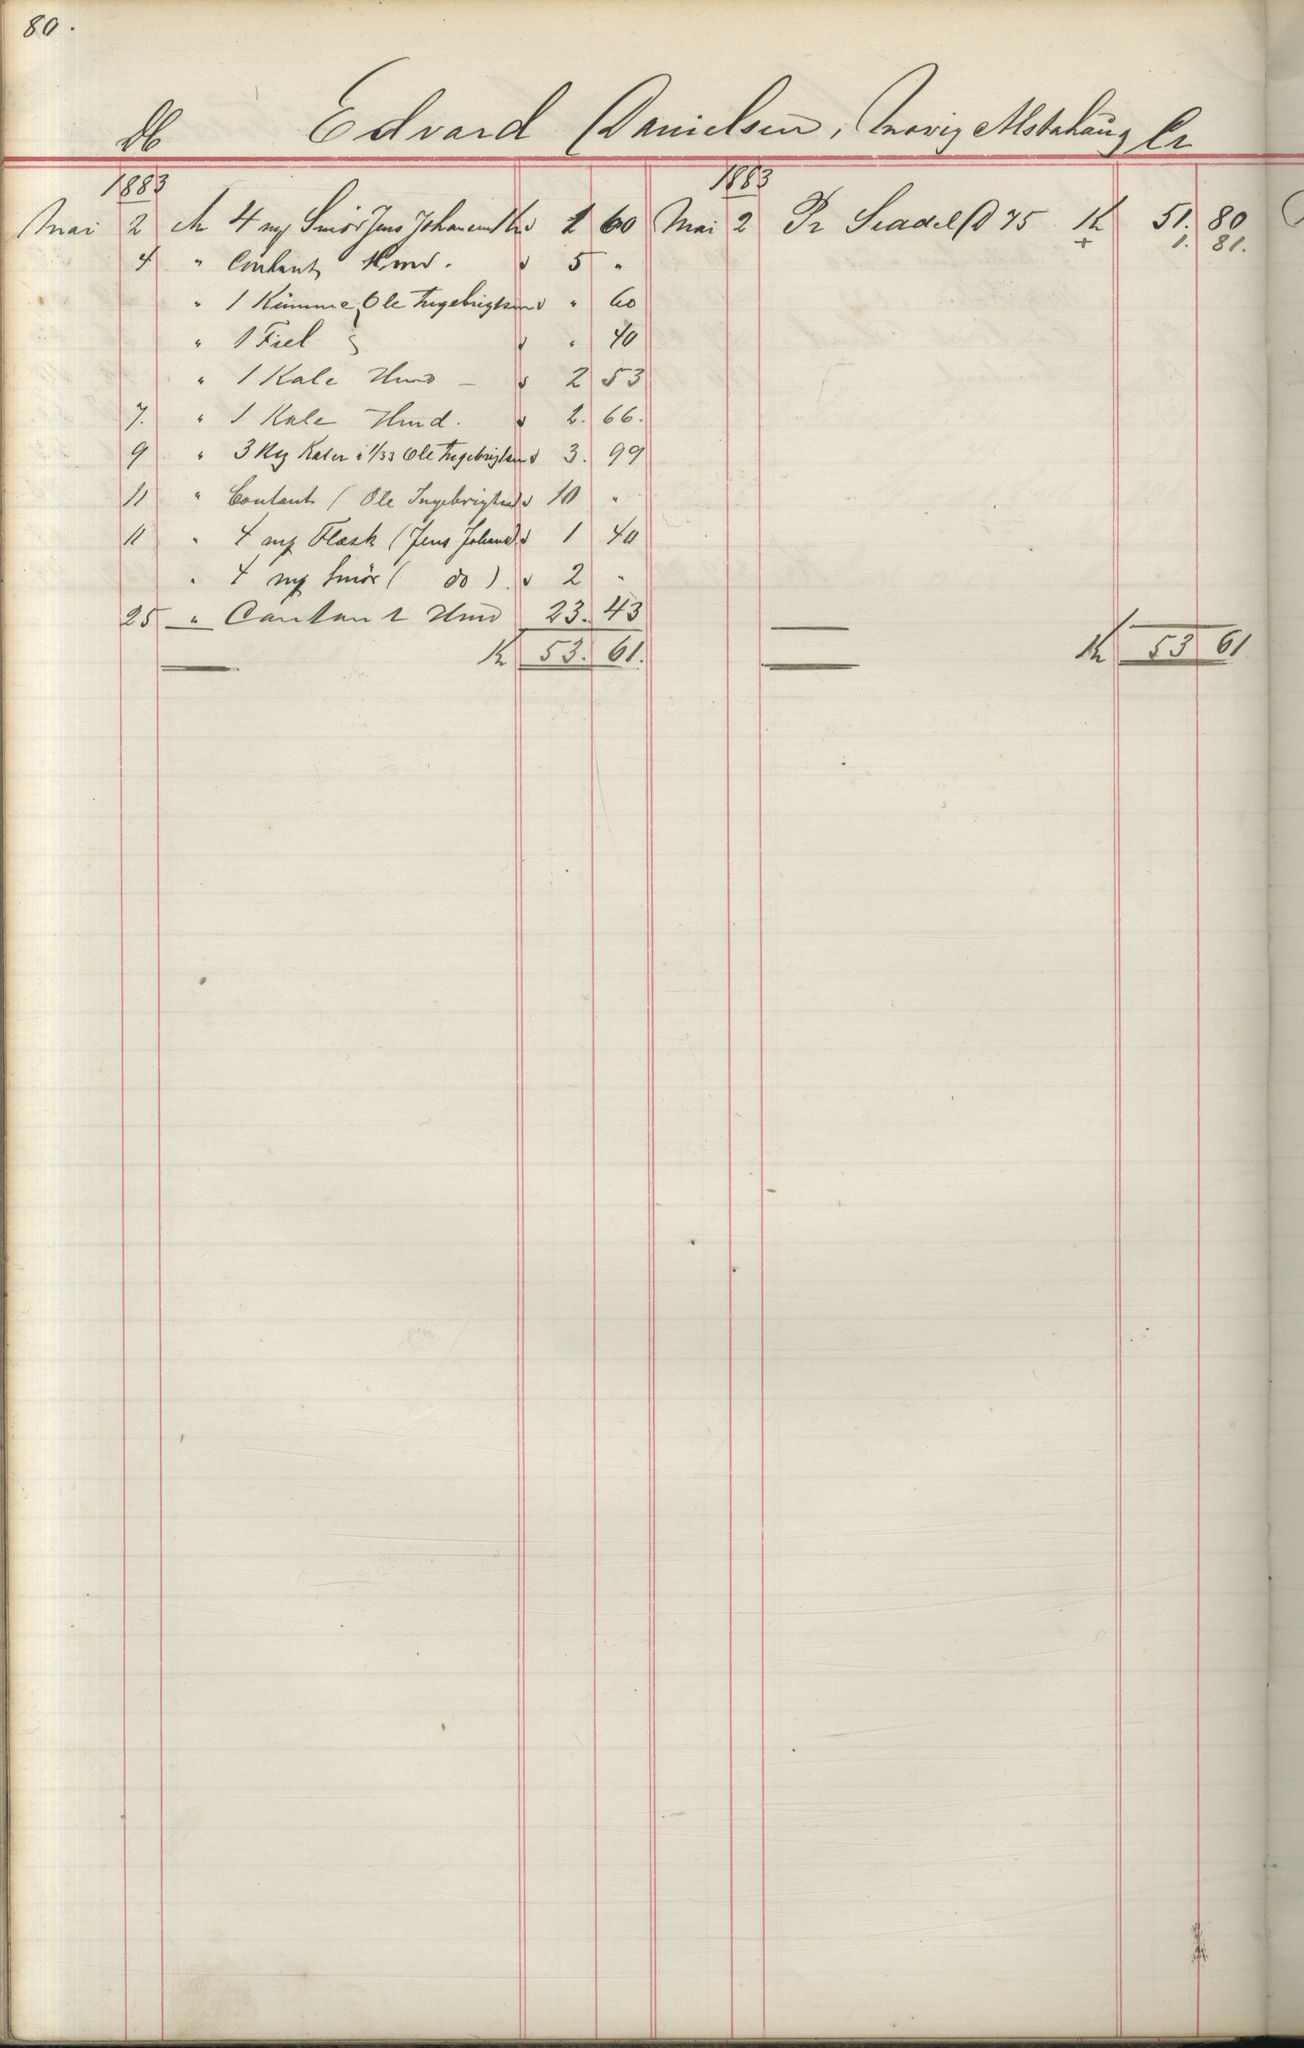 80.
Db Edvard Danielsen, Alstahaug Cr
1883 1883
Mai 2 An 4 mp Smör Jens Johansen Kr 1 60 Mai 2 Pr Seddel D 75 Kr 51. 80
4 " Contant Hmd. 5 " + 1. 81.
" 1 Kumme Ole Ingebrigtsen " 60
" 1 Fiel " 40
" 1 Kale Hmd - 2 53
7. " 1 Kale Hmd. 2. 66.
9 " 3 Kaler i 1/33 Ole Ingebrigtsen 3. 99
11 " Contant (Ole Ingebrigtsen 10 "
11 " 4 mp Flæsk (Jens Johans) 1 40
" 4 mp Smör ( do ) 2 "
25 " Contant Hmd 23. 43
Kr 53. 61. Kr 53 61